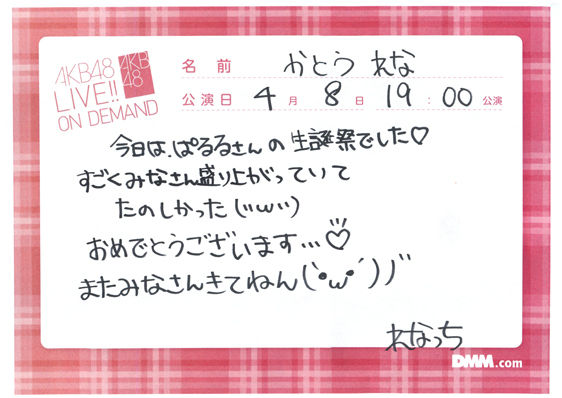 AKB48
LIVE!!
ON DEMAND
AKB
48
名前 かとう れな
公演日 4月8日 19:00公演
今日は、ぱるるさんの生誕祭でした♡
すごくみなさん盛り上がっていて
たのしかった(´ω`)
おめでとうございます…♡
またみなさんきてねん(`•ω•´)ノ゙
れなっち
DMM.com